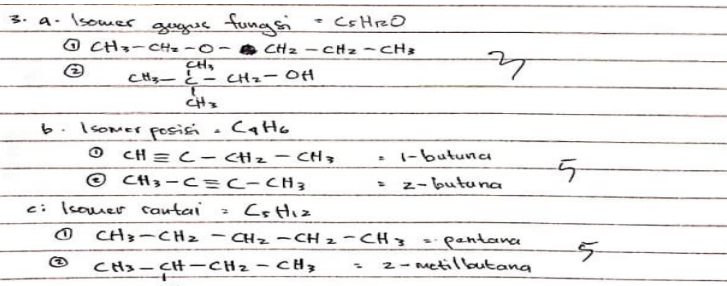 3. a. Isomer gugus fungsi = C5H12O
① CH3-CH2-O-CH2-CH2-CH3
3
CH3
② CH3-C-CH2-OH
CH3
b. Isomer posisi = C4H6
① CH≡C-CH2-CH3 = 1-butuna
5
② CH3-C≡C-CH3 = 2-butuna
c: Isomer rantai = C5H12
① CH3-CH2-CH2-CH2-CH3 = pentana
5
② CH3-CH-CH2-CH3 = 2-metilbutana